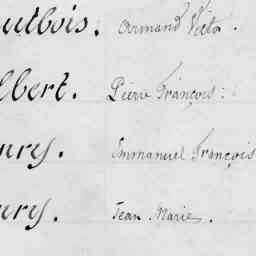 utbois. Armand Victo.
lbert. Pierre François.
urs. Emmanuel François
urs. Jean Marie.